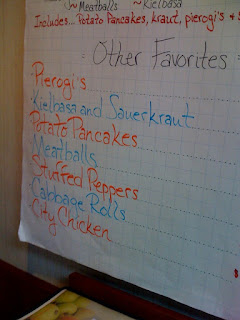 ~Meatballs ~Kielbasa
Includes... Potato Pancakes, kraut, pierogi's +
Other Favorites
Pierogi's
Kielbasa and Sauerkraut
Potato Pancakes
Meatballs
Stuffed Peppers
Cabbage Rolls
City Chicken